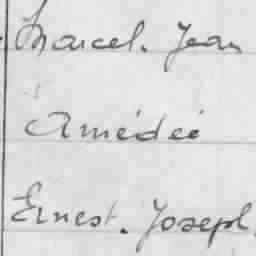 Marcel. Jean
Amédée
Ernest. Joseph